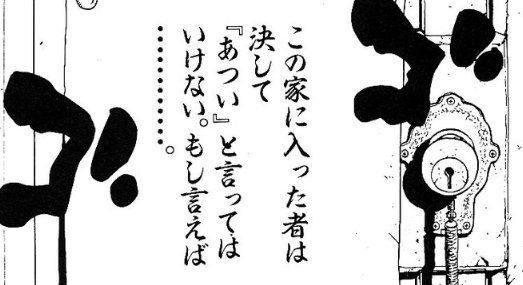 ゴ
この家に入った者は
決して
『あつい』と言っては
いけない。もし言えば
‥‥‥‥‥。
ゴ